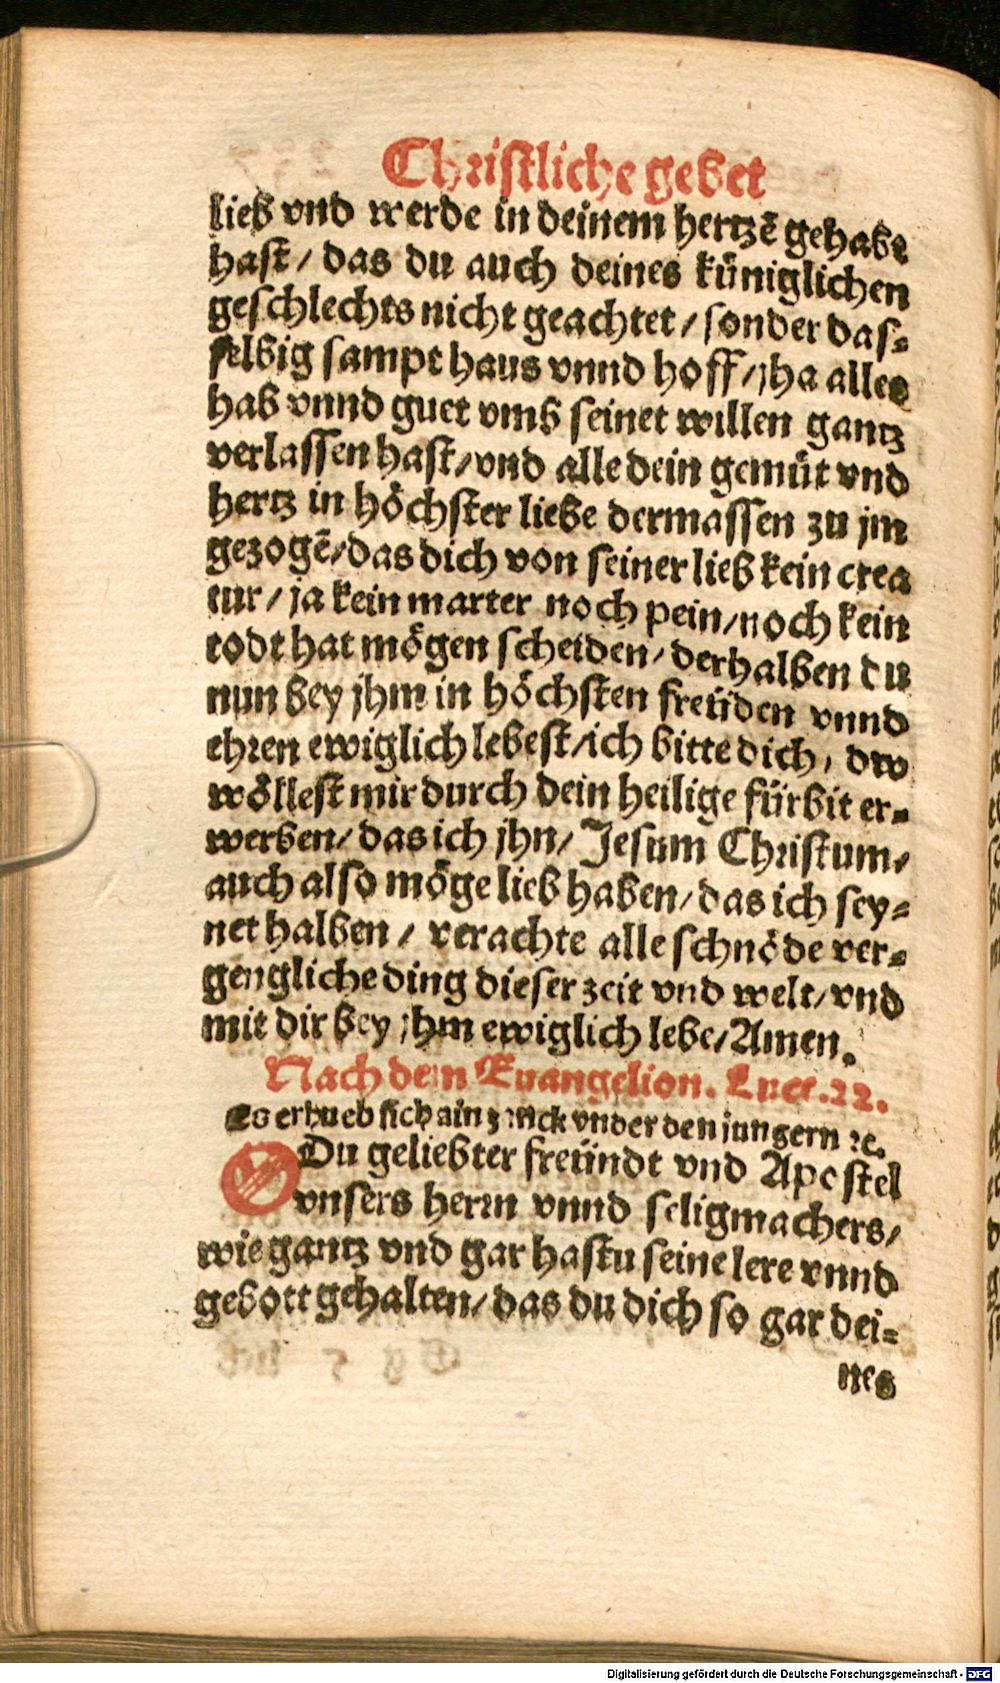 Christliche gebet
lieb vnd werde in deinem hertzē gehabt
hast / das du auch deines küniglichen
geschlechts nicht geachtet / sonder das⸗
selbig sampt haus vnnd hoff / jha alles
hab vnnd guet vmb seinet willen gantz
verlassen hast / vnd alle dein gemüt vnd
hertz in höchster liebe dermassen zu jm
gezogē / das dich von seiner lieb kein crea
tur / ja kein marter noch pein / noch kein
todt hat mögen scheiden / derhalben du
nun bey jhm in höchsten freüden vnnd
ehren ewiglich lebest / ich bitte dich / dw
wöllest mir durch dein heilige fürbit er⸗
werben / das ich jhn / Jesum Christum /
auch also möge lieb haben / das ich sey⸗
net halben / verachte alle schnöde ver⸗
gengliche ding dieser zeit vnd welt / vnd
mit dir bey jhm ewiglich lebe / Amen.
Nach dem Euangelion. Luce. 22.
Es erhueb sich ain zanck vnder den jungern ꝛc.
O Du geliebter freündt vnd Apostel
vnsers herrn vnnd seligmachers /
wie gantz vnd gar hastu seine lere vnnd
gebott gehalten / das du dich so gar dei⸗
nes
Digitalisierung gefördert durch die Deutsche Forschungsgemeinschaft - DFG